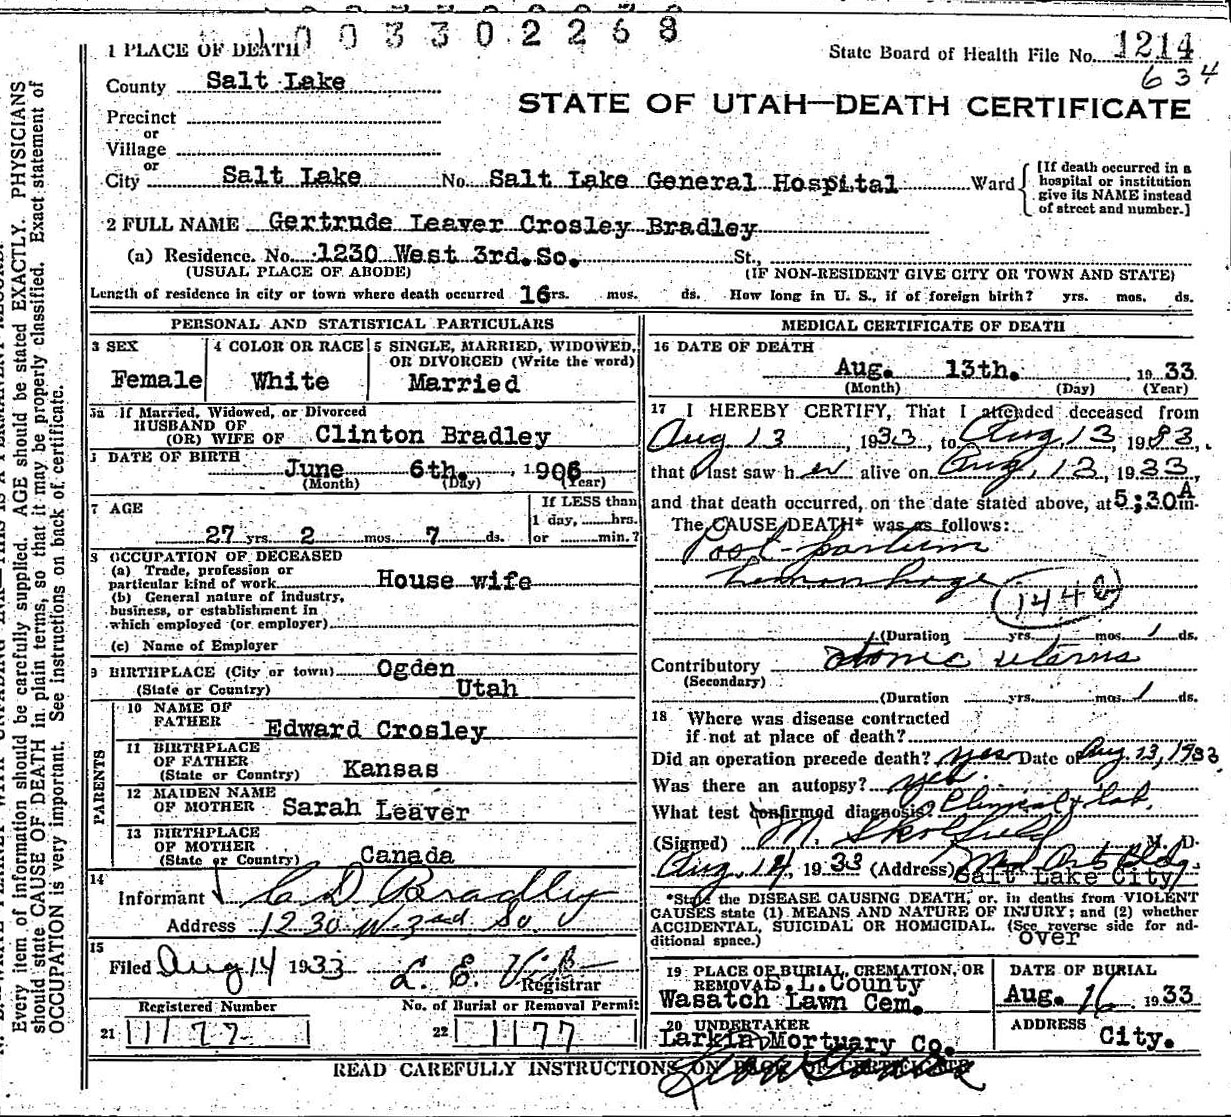 0 0 3 3 0 2 2 6 8
1 PLACE OF DEATH
State Board of Health File No. 1214
634
County Salt Lake
STATE OF UTAH—DEATH CERTIFICATE
Precinct
or
Village
or
City Salt Lake No. Salt Lake General Hospital Ward
[If death occurred in a hospital or institution give its NAME instead of street and number.]
2 FULL NAME Gertrude Leaver Crosley Bradley
(a) Residence. No. 1230 West 3rd.So. St.,
(USUAL PLACE OF ABODE) (IF NON-RESIDENT GIVE CITY OR TOWN AND STATE)
Length of residence in city or town where death occurred 16rs. mos. ds. How long in U. S., if of foreign birth? yrs. mos. ds.
PERSONAL AND STATISTICAL PARTICULARS
3 SEX
Female
4 COLOR OR RACE
White
5 SINGLE, MARRIED, WIDOWED, OR DIVORCED (Write the word)
Married
5a If Married, Widowed, or Divorced
HUSBAND OF
(OR) WIFE OF Clinton Bradley
DATE OF BIRTH
June 6th. 1906
(Month) (Day) (Year)
7 AGE
27 yrs. 2 mos. 7 ds.
If LESS than
1 day, hrs.
or min.?
8 OCCUPATION OF DECEASED
(a) Trade, profession or
particular kind of work House wife
(b) General nature of industry,
business, or establishment in
which employed (or employer)
(c) Name of Employer
9 BIRTHPLACE (City or town) Ogden
(State or Country) Utah
PARENTS
10 NAME OF
FATHER Edward Crosley
11 BIRTHPLACE
OF FATHER
(State or Country) Kansas
12 MAIDEN NAME
OF MOTHER Sarah Leaver
13 BIRTHPLACE
OF MOTHER
(State or Country) Canada
14
Informant C D Bradley
Address 1230 W 3rd So.
15
Filed Aug 14 1933 L. E.
Registrar
Registered Number
21 1177
No. of Burial or Removal Permit
22 1177
MEDICAL CERTIFICATE OF DEATH
16 DATE OF DEATH
Aug. 13th. 1933
(Month) (Day) (Year)
17 I HEREBY CERTIFY, That I attended deceased from
Aug 13, 1933, to Aug. 13, 1933,
that I last saw her alive on Aug. 13, 1933,
and that death occurred, on the date stated above, at 5:30 A m.
The CAUSE DEATH* was as follows:
Post-partum
hemorrhage
144 b
(Duration yrs. mos. 1 ds.
Contributory atonic uterus
(Secondary)
(Duration yrs. mos. 1 ds.
18 Where was disease contracted
if not at place of death?
Did an operation precede death? yes Date of Aug. 13, 1933
Was there an autopsy? yes.
What test confirmed diagnosis? Clinical + lab.
(Signed) M. Skolfield M. D.
Aug. 14, 1933 (Address) Med Arts Bldg.
Salt Lake City
*State the DISEASE CAUSING DEATH, or, in deaths from VIOLENT
CAUSES state (1) MEANS AND NATURE OF INJURY; and (2) whether
ACCIDENTAL, SUICIDAL OR HOMICIDAL. (See reverse side for ad-
ditional space.) over
19 PLACE OF BURIAL, CREMATION, OR
REMOVAL S.L.County
Wasatch Lawn Cem.
DATE OF BURIAL
Aug. 16 1933
20 UNDERTAKER
Larkin Mortuary Co.
ADDRESS
City.
READ CAREFULLY INSTRUCTIONS ON BACK OF CERTIFICATE
Every item of information should be carefully supplied. AGE should be stated EXACTLY. PHYSICIANS
should state CAUSE OF DEATH in plain terms, so that it may be properly classified. Exact statement of
OCCUPATION is very important. See instructions on back of certificate.